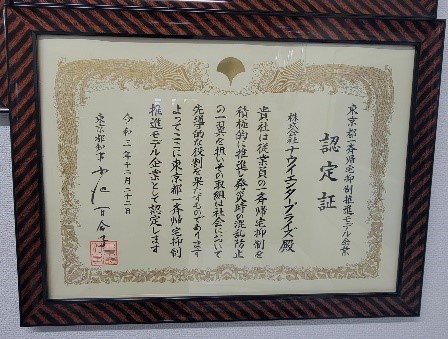 東京都一斉帰宅抑制推進モデル企業
認定証
株式会社ナウイエンタープライズ 殿
貴社は従業員の一斉帰宅抑制を
積極的に推進し発災時の混乱防止
の一翼を担いその取組は社会において
先導的な役割を果たすものであります
よってここに東京都一斉帰宅抑制
推進モデル企業として認定します
令和三年十二月二十二日
東京都知事 小池百合子